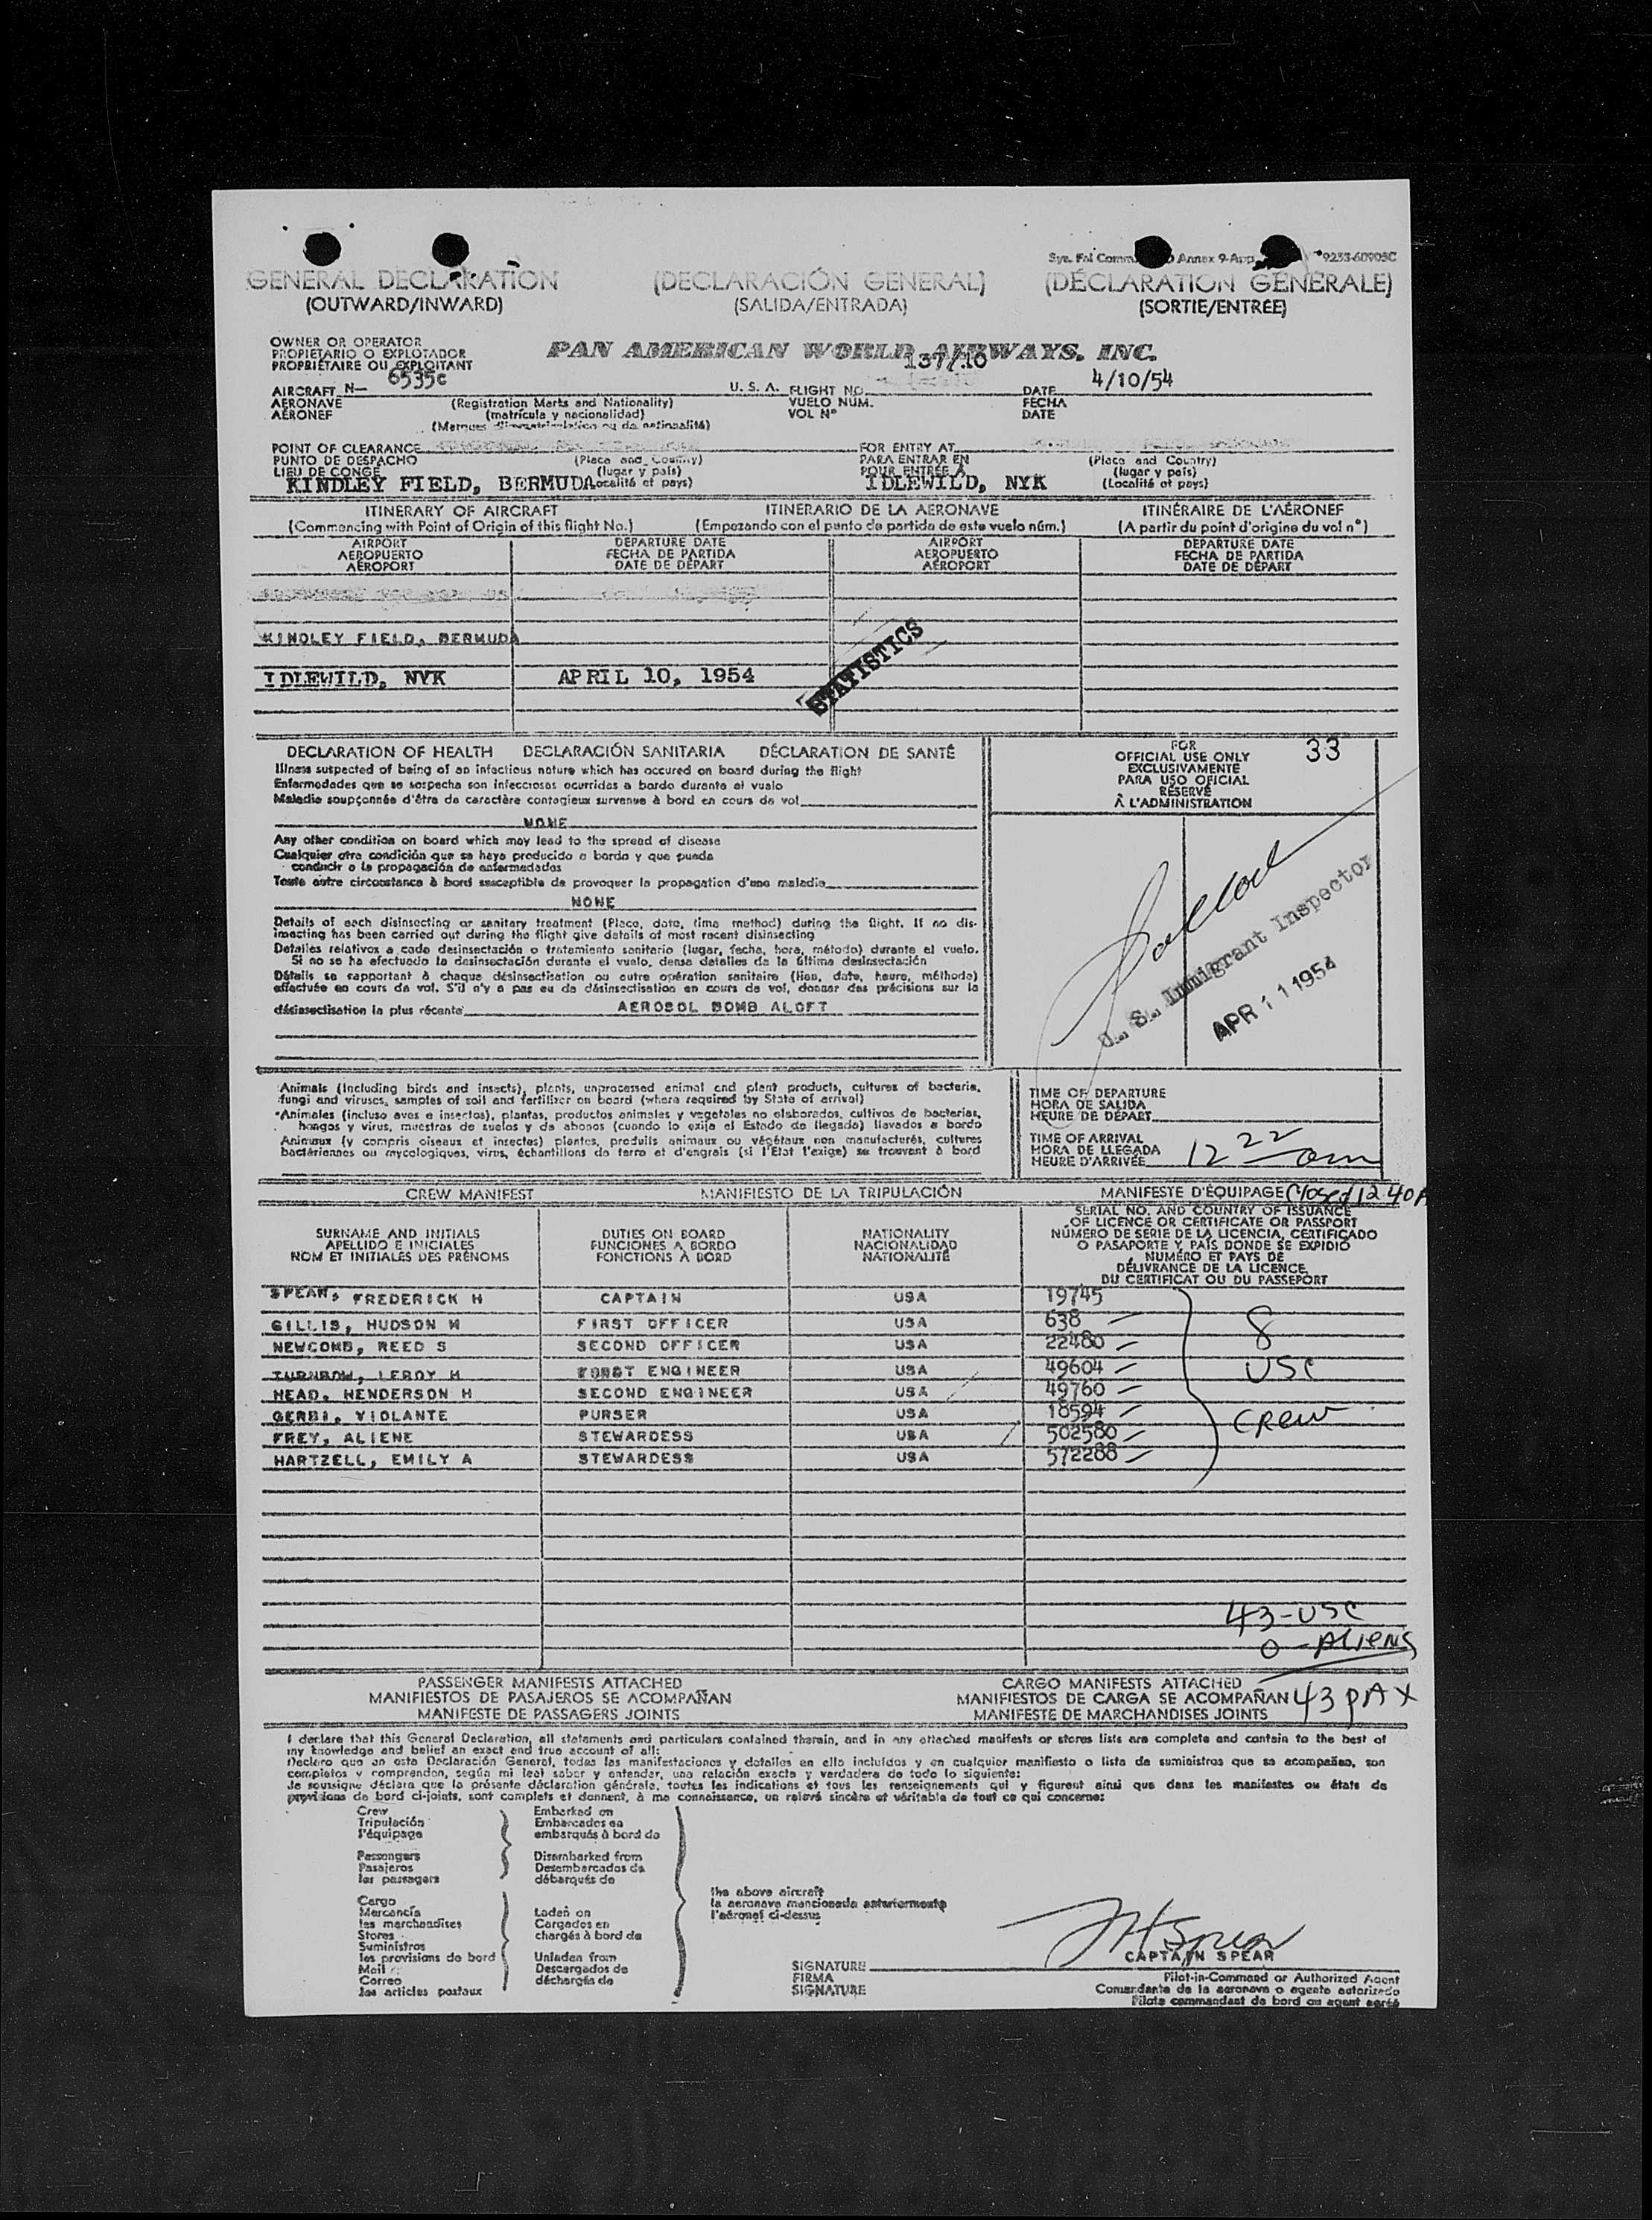 Annex 9-App. 9233-60905C
GENERAL DECLARATION (DECLARACIÓN GENERAL) (DÉCLARATION GÉNÉRALE)
(OUTWARD/INWARD) (SALIDA/ENTRADA) (SORTIE/ENTRÉE)
OWNER OR OPERATOR
PROPIETARIO O EXPLOTADOR PAN AMERICAN WORLD AIRWAYS, INC.
PROPRIÉTAIRE OU EXPLOITANT
137/10
AIRCRAFT N— 6535C U. S. A. FLIGHT NO. DATE 4/10/54
AERONAVE (Registration Marks and Nationality) VUELO NÚM. FECHA
AÉRONEF (matrícula y nacionalidad) VOL Nº DATE
POINT OF CLEARANCE FOR ENTRY AT
PUNTO DE DESPACHO (Place and Country) PARA ENTRAR EN (Place and Country)
LIEU DE CONGÉ (lugar y país) POUR ENTRÉE À (lugar y país)
KINDLEY FIELD, BERMUDA IDLEWILD, NYK (Localité et pays)
ITINERARY OF AIRCRAFT ITINERARIO DE LA AERONAVE ITINÉRAIRE DE L'AÉRONEF
(Commencing with Point of Origin of this flight No.) (Empezando con el punto de partida de este vuelo núm.) (A partir du point d'origine du vol nº)
AIRPORT DEPARTURE DATE AIRPORT DEPARTURE DATE
AEROPUERTO FECHA DE PARTIDA AEROPUERTO FECHA DE PARTIDA
AÉROPORT DATE DE DÉPART AÉROPORT DATE DE DÉPART
KINDLEY FIELD, BERMUDA
STATISTICS
IDLEWILD, NYK APRIL 10, 1954
DECLARATION OF HEALTH DECLARACIÓN SANITARIA DÉCLARATION DE SANTÉ
Illness suspected of being of an infectious nature which has occured on board during the flight
Enfermedades que se sospecha son infecciosas ocurridas a bordo durante el vuelo
Maladie soupçonnée d'être de caractère contagieux survenue à bord en cours de vol
NONE
Any other condition on board which may lead to the spread of disease
Cualquier otra condición que se haya producido a bordo y que pueda
conducir a la propagación de enfermedades
Toute autre circonstance à bord susceptible de provoquer la propagation d'une maladie
NONE
Details of each disinsecting or sanitary treatment (Place, date, time method) during the flight. If no dis-
insecting has been carried out during the flight give details of most recent disinsecting
Detalles relativos a cada desinsectación o tratamiento sanitario (lugar, fecha, hora, método) durante el vuelo.
Si no se ha efectuado la desinsectación durante el vuelo, dense detalles de la última desinsectación
Détails se rapportant à chaque désinsectisation ou autre opération sanitaire (lieu, date, heure, méthode)
effectuée en cours de vol. S'il n'y a pas eu de désinsectisation en cours de vol, donner des précisions sur la
désinsectisation la plus récente AEROSOL BOMB ALOFT
FOR 33
OFFICIAL USE ONLY
EXCLUSIVAMENTE
PARA USO OFICIAL
RÉSERVÉ
À L'ADMINISTRATION
U. S. Immigrant Inspector
APR 11 1954
Animals (including birds and insects), plants, unprocessed animal and plant products, cultures of bacteria,
fungi and viruses, samples of soil and fertilizer on board (where required by State of arrival)
Animales (incluso aves e insectos), plantas, productos animales y vegetales no elaborados, cultivos de bacterias,
hongos y virus, muestras de suelos y de abonos (cuando lo exija el Estado de llegada) llevados a bordo
Animaux (y compris oiseaux et insectes) plantes, produits animaux ou végétaux non manufacturés, cultures
bactériennes ou mycologiques, virus, échantillons de terre et d'engrais (si l'État l'exige) se trouvant à bord
TIME OF DEPARTURE
HORA DE SALIDA
HEURE DE DÉPART
TIME OF ARRIVAL
HORA DE LLEGADA
HEURE D'ARRIVÉE 12 22 am
CREW MANIFEST MANIFIESTO DE LA TRIPULACIÓN MANIFESTE D'ÉQUIPAGE Closed 12 40A
SURNAME AND INITIALS DUTIES ON BOARD NATIONALITY SERIAL NO. AND COUNTRY OF ISSUANCE
APELLIDO E INICIALES FUNCIONES A BORDO NACIONALIDAD OF LICENCE OR CERTIFICATE OR PASSPORT
NOM ET INITIALES DES PRÉNOMS FONCTIONS À BORD NATIONALITÉ NÚMERO DE SERIE DE LA LICENCIA, CERTIFICADO
O PASAPORTE Y PAÍS DONDE SE EXPIDIÓ
NUMÉRO ET PAYS DE
DÉLIVRANCE DE LA LICENCE,
DU CERTIFICAT OU DU PASSEPORT
SPEAR, FREDERICK H CAPTAIN USA 19745
GILLIS, HUDSON M FIRST OFFICER USA 638
NEWCOMB, REED S SECOND OFFICER USA 22480
TURNBOW, LEROY H FIRST ENGINEER USA 49604
HEAD, HENDERSON H SECOND ENGINEER USA 49760
GERBI, VIOLANTE PURSER USA 18594
FREY, ALIENE STEWARDESS USA 502580
HARTZELL, EMILY A STEWARDESS USA 572288
8
USC
CREW
43-USC
0-ALIENS
43 PAX
PASSENGER MANIFESTS ATTACHED CARGO MANIFESTS ATTACHED
MANIFIESTOS DE PASAJEROS SE ACOMPAÑAN MANIFIESTOS DE CARGA SE ACOMPAÑAN
MANIFESTE DE PASSAGERS JOINTS MANIFESTE DE MARCHANDISES JOINTS
I declare that this General Declaration, all statements and particulars contained therein, and in any attached manifests or stores lists are complete and contain to the best of
my knowledge and belief an exact and true account of all:
Declaro que en esta Declaración General, todas las manifestaciones y detalles en ella incluídos y en cualquier manifiesto o lista de suministros que se acompañan, son
completos y comprenden, según mi leal saber y entender, una relación exacta y verdadera de todo lo siguiente:
Je soussigne déclare que la présente déclaration générale, toutes les indications et tous les renseignements qui y figurent ainsi que dans les manifestes ou états de
provisions de bord ci-joints, sont complets et donnent, à ma connaissance, un relevé sincère et véritable de tout ce qui concerne:
Crew Embarked on
Tripulación Embarcados en
l'équipage embarqués à bord de
Passengers Disembarked from
Pasajeros Desembarcados de
les passagers débarqués de
Cargo
Mercancía Laden on
les marchandises Cargados en
Stores chargés à bord de
Suministros
les provisions de bord Unladen from
Mail Descargados de
Correo déchargés de
les articles postaux
the above aircraft
la aeronave mencionada anteriormente
l'aéronef ci-dessus
FHSpear
CAPTAIN SPEAR
SIGNATURE Pilot-in-Command or Authorized Agent
FIRMA Comandante de la aeronave o agente autorizado
SIGNATURE Pilote commandant de bord ou agent agréé